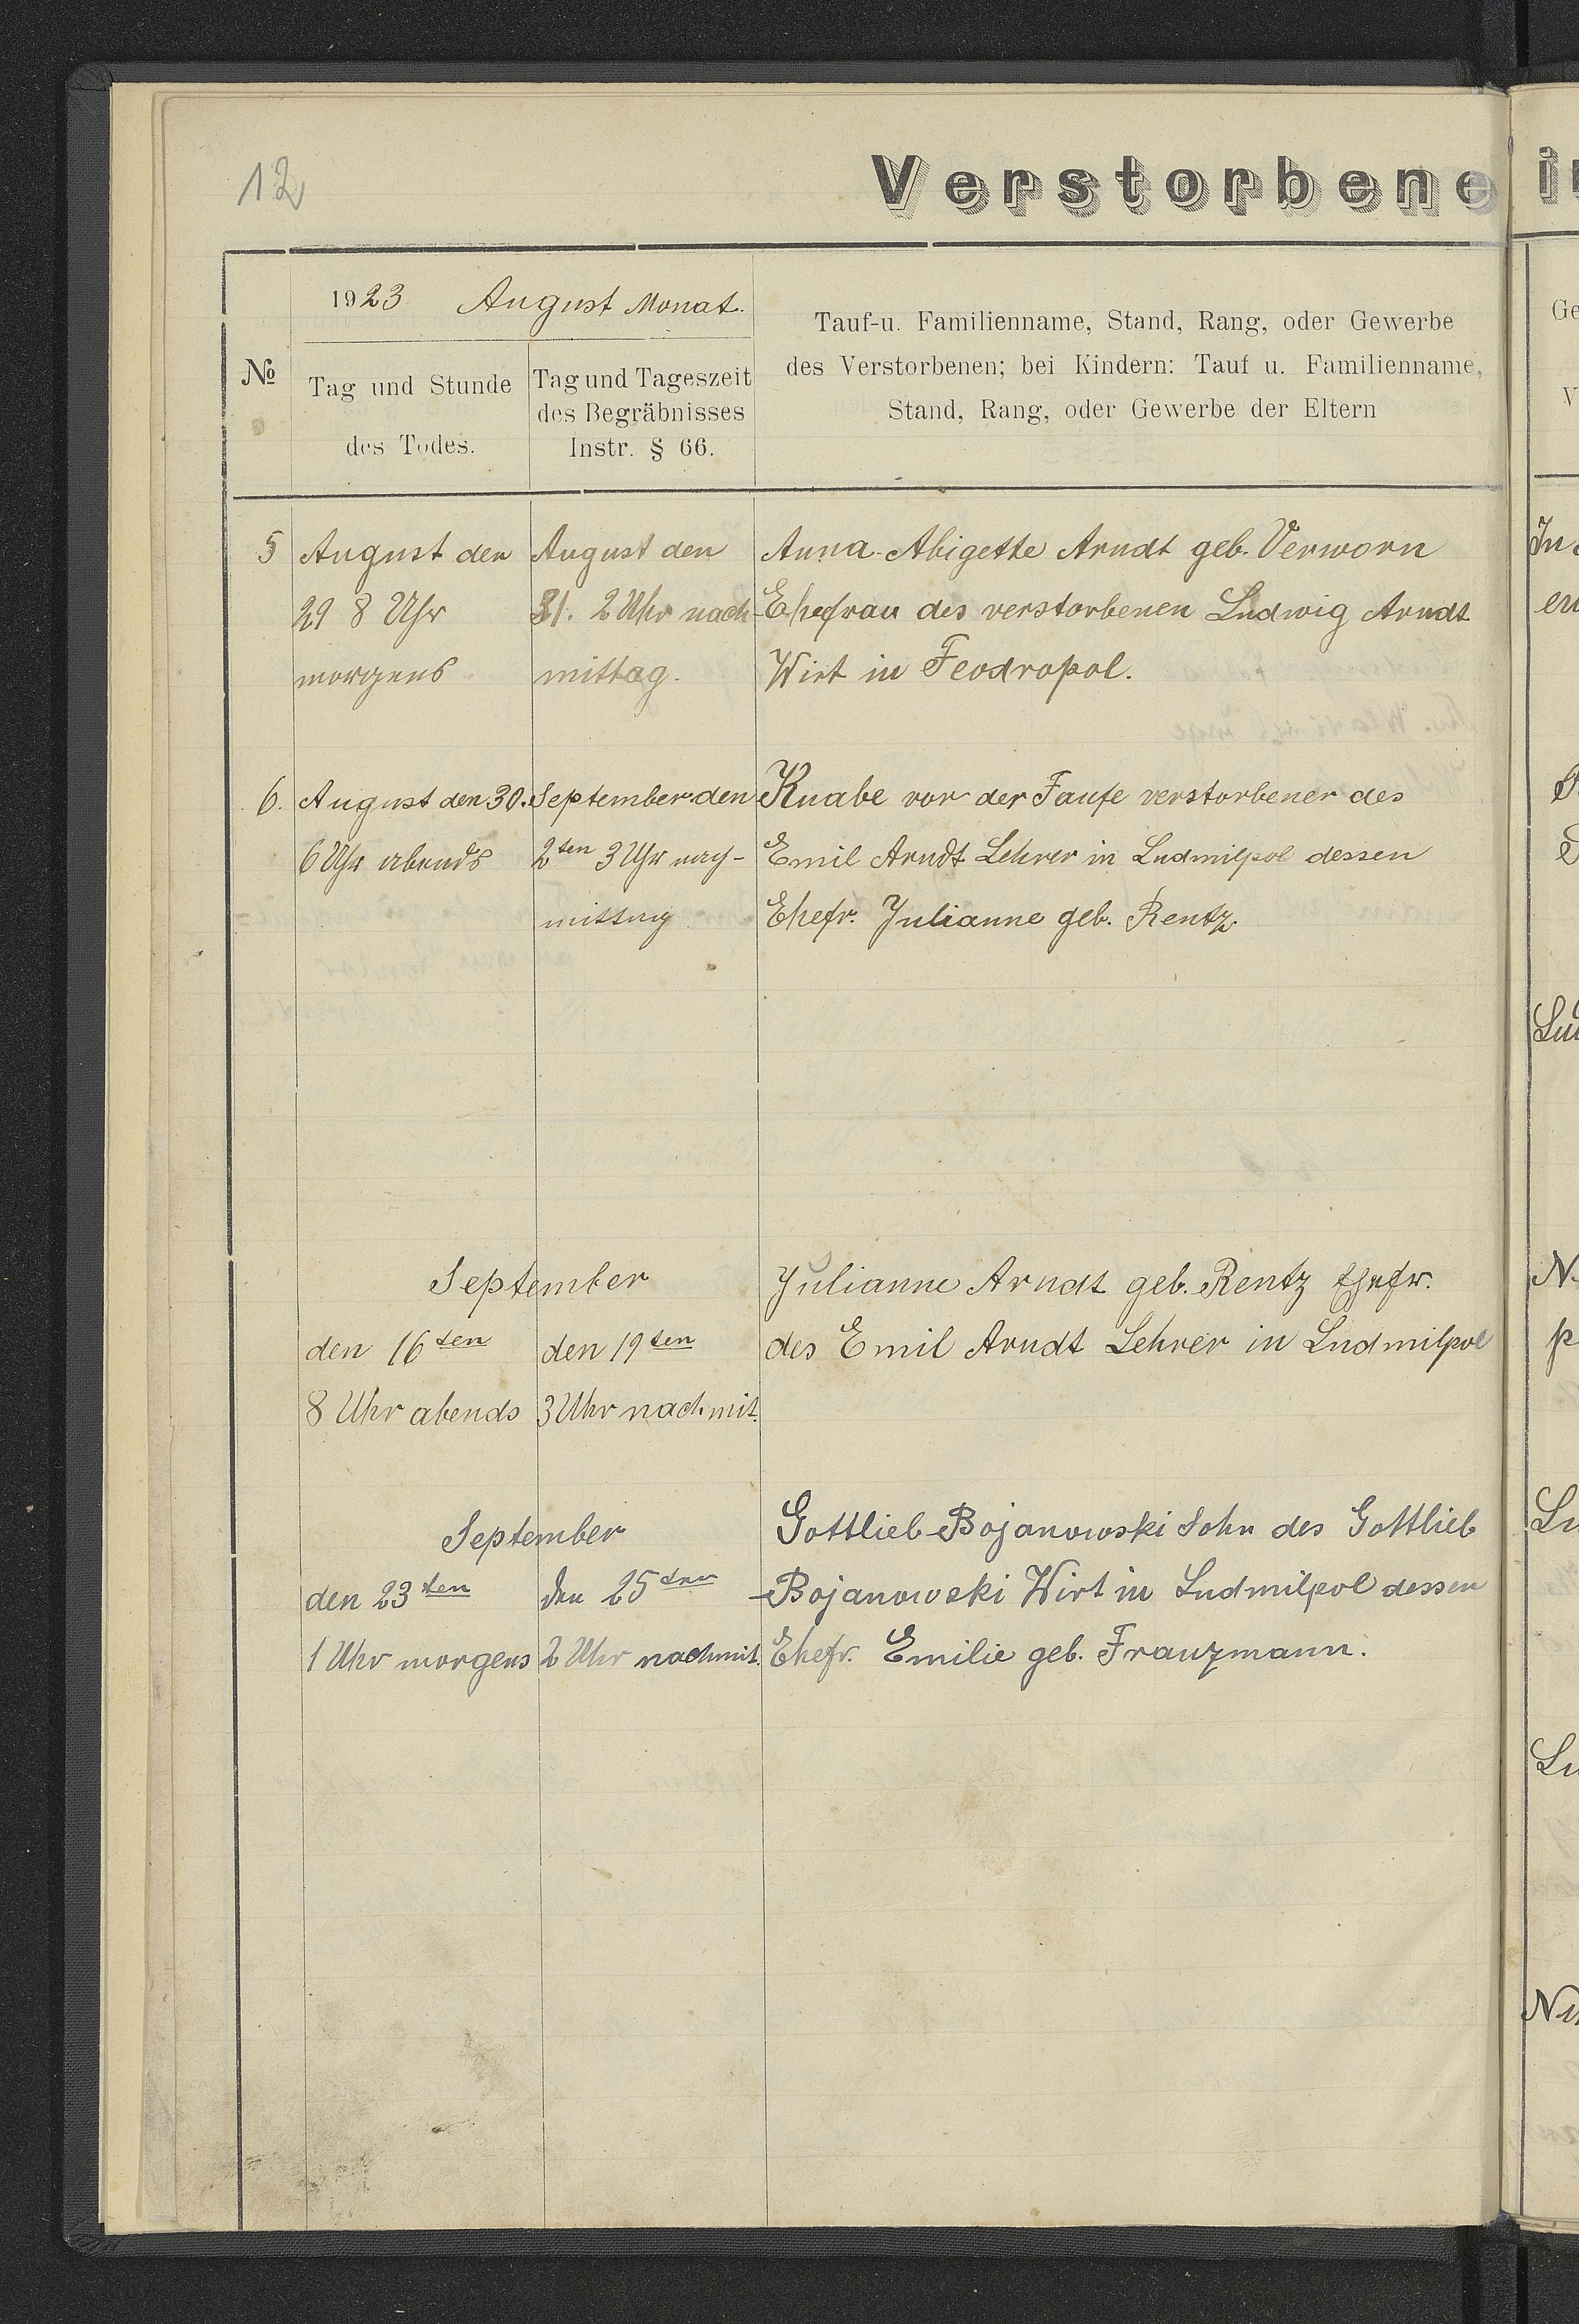 12
Verstorbene
1923 August Monat.
№
Tag und Stunde
des Todes.
Tag und Tageszeit
des Begräbnisses
Instr. § 66.
Tauf-u. Familienname, Stand, Rang, oder Gewerbe
des Verstorbenen; bei Kindern: Tauf u. Familienname,
Stand, Rang, oder Gewerbe der Eltern
5
August den
29 8 Uhr
morgens
August den
31. 2 Uhr nach-
mittag.
Anna-Abigette Arndt geb. Verworn
Ehefrau des verstorbenen Ludwig Arndt
Wirt in Feodropol.
6.
August den 30.
6 Uhr abends
September den
2ten 3 Uhr nach-
mittag
Knabe vor der Taufe verstorbener des
Emil Arndt Lehrer in Ludmilpol dessen
Ehefr. Julianne geb. Rentz.
September
den 16ten
8 Uhr abends
den 19ten
3 Uhr nachmit.
Julianne Arndt geb. Rentz Ehefr.
des Emil Arndt Lehrer in Ludmilpol
September
den 23ten
1 Uhr morgens
den 25ten
2 Uhr nachmit.
Gottlieb Bojanowski Sohn des Gottlieb
Bojanowski Wirt in Ludmilpol dessen
Ehefr. Emilie geb. Franzmann.